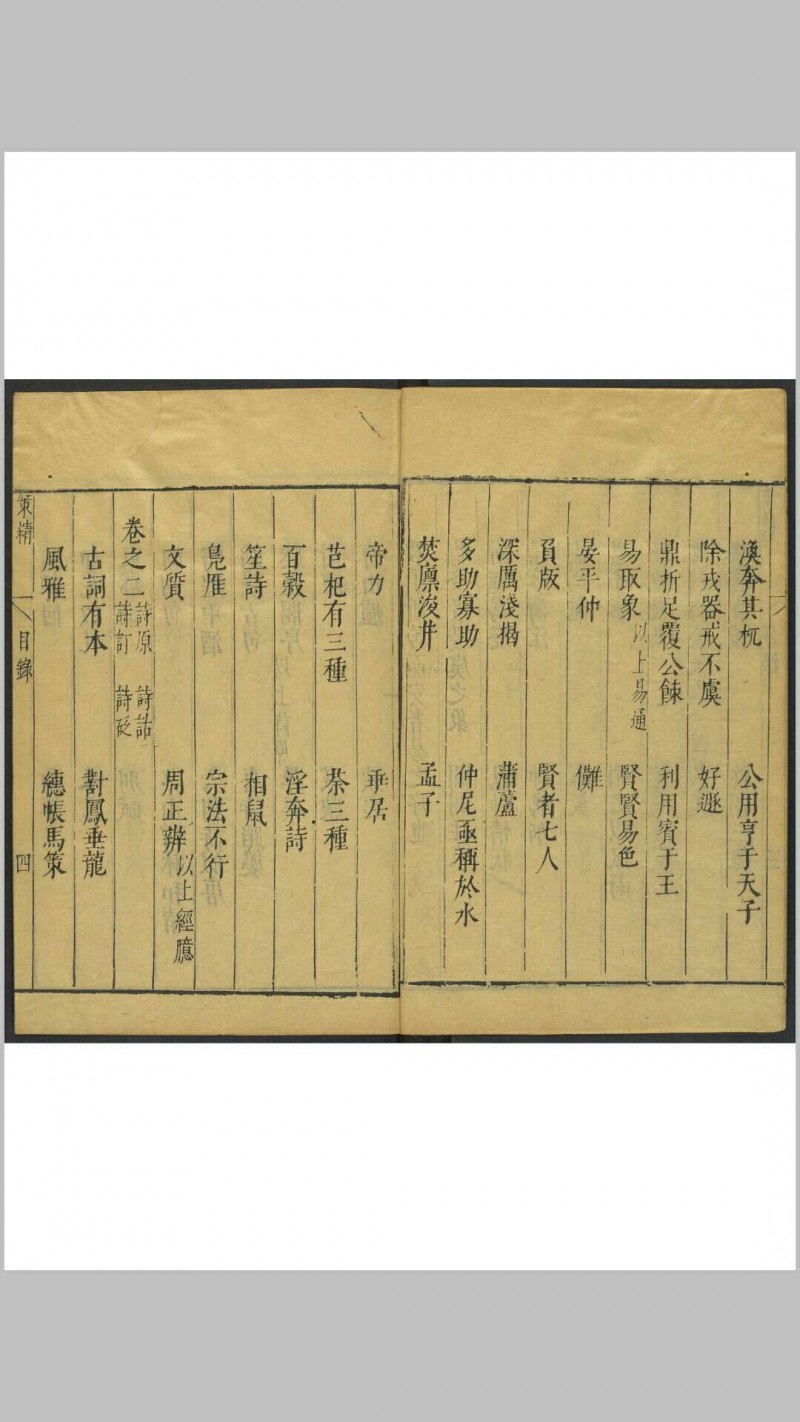 渙奔其杌 公用亨于天子
除戎器戒不虞 好遯
鼎折足覆公餗 利用賓于王
易取象以上易通 賢賢易色
晏平仲 儺
負版 賢者七人
深厲淺揭 蒲蘆
多助寡助 仲尼亟稱於水
焚廩浚井 孟子
帝力 乖居
芑杞有三種 荼三種
百穀 淫奔詩
笙詩 相鼠
鳧雁 宗法不行
文質 周正辨以上經臆
卷之二 詩原 詩話 詩訂 詩砭
古詞有本 對鳳垂龍
風雅 繐帳馬策
策精 一 目錄 四